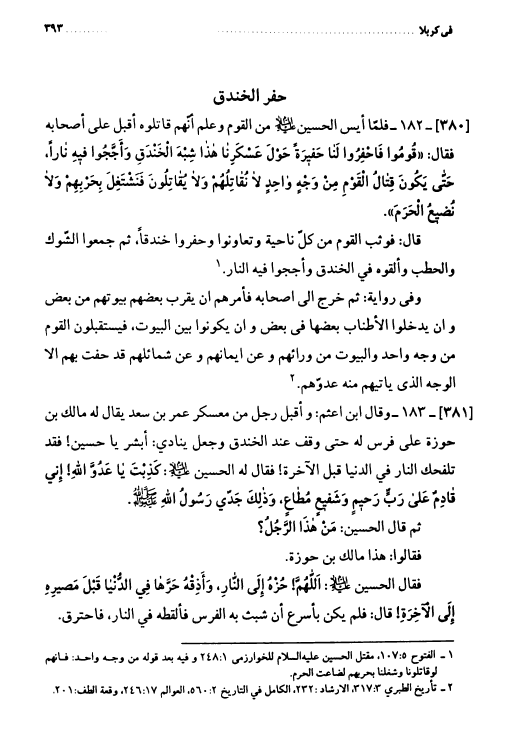 في كربلا ........................................................ ۳۹۳
حفر الخندق
[۳۸۰] ـ ۱۸۲ ـ فلمّا أيس الحسين عليه السلام من القوم وعلم أنّهم قاتلوه أقبل على أصحابه
فقال: «قُومُوا فَاحْفِرُوا لَنا حَفيرَةً حَوْلَ عَسْكَرِنا هٰذا شِبْهَ الْخَنْدَقِ وَأَجِّجُوا فيهِ ناراً،
حَتّٰى يَكُونَ قِتالُ الْقَوْمِ مِنْ وَجْهٍ واحِدٍ لاٰ نُقاتِلُهُمْ وَلاٰ يُقاتِلُونَ فَنَشْتَغِلَ بِحَرْبِهِمْ وَلاٰ
نُضيعُ الْحَرَمَ».
قال: فوثب القوم من كلّ ناحية وتعاونوا وحفروا خندقاً، ثم جمعوا الشوك
والحطب وألقوه في الخندق وأججوا فيه النار.۱
وفى رواية: ثم خرج الى اصحابه فأمرهم ان يقرب بعضهم بيوتهم من بعض
و ان يدخلوا الأطناب بعضها فى بعض و ان يكونوا بين البيوت، فيستقبلون القوم
من وجه واحد والبيوت من ورائهم و عن ايمانهم و عن شمائلهم قد حفت بهم الا
الوجه الذى ياتيهم منه عدوّهم.۲
[۳۸۱] ـ ۱۸۳ ـ وقال ابن اعثم: و أقبل رجل من معسكر عمر بن سعد يقال له مالك بن
حوزة على فرس له حتى وقف عند الخندق وجعل ينادي: أبشر يا حسين! فقد
تلفحك النار في الدنيا قبل الآخرة! فقال له الحسين عليه السلام: كَذِبْتَ يٰا عَدُوَّ اللهِ! إِنّي
قادِمٌ عَلىٰ رَبٍّ رَحيمٍ وَشَفيعٍ مُطاعٍ، وَذٰلِكَ جَدّي رَسُولُ اللهِ ﷺ.
ثم قال الحسين: مَنْ هٰذَا الرَّجُلُ؟
فقالوا: هذا مالك بن حوزة.
فقال الحسين عليه السلام: اَللّٰهُمَّ! حُزْهُ إِلَى النَّارِ، وَأَذِقْهُ حَرَّهٰا فِي الدُّنْيٰا قَبْلَ مَصيرِهِ
إِلَى الْآخِرَةِ! قال: فلم يكن بأسرع أن شبث به الفرس فألقطه في النار، فاحترق.
۱ ـ الفتوح ۵:۱۰۷، مقتل الحسين عليه‌السلام للخوارزمى ۱:۲۴۸ و فيه بعد قوله من وجه واحد: فانهم
لوقاتلونا وشغلنا بحربهم لضاعت الحرم.
۲ ـ تأريخ الطبري ۳:۳۱۷، الارشاد :۲۳۲، الكامل في التاريخ ۲:۵۶۰، العوالم ۱۷:۲۴۶، وقعة الطف:۲۰۱.